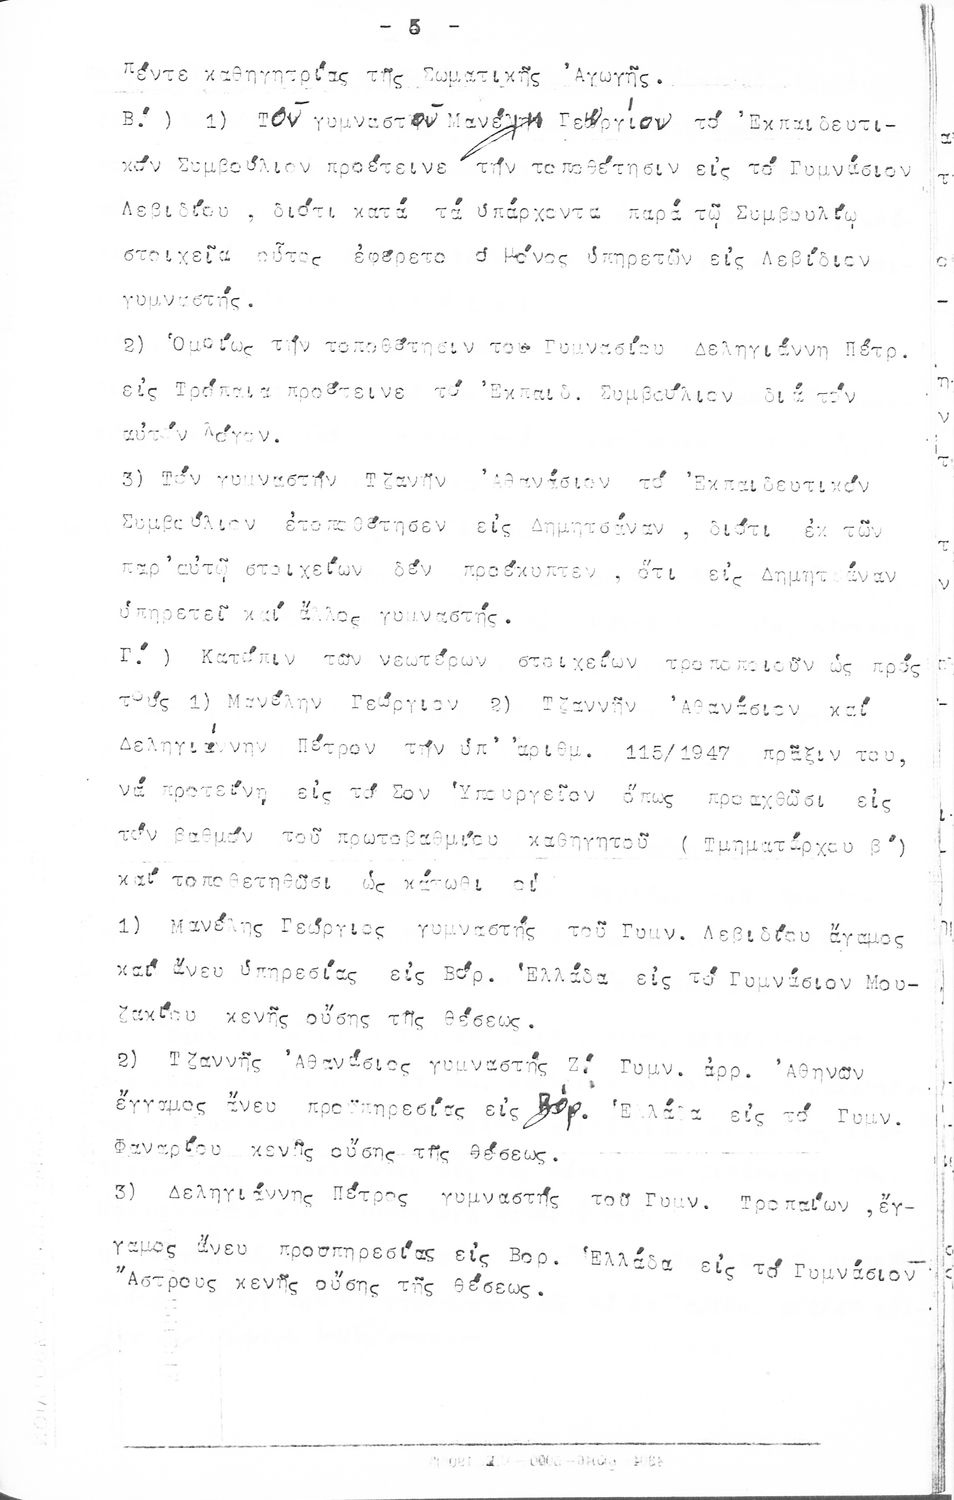 - 5 -
πέντε καθηγητρίας τῆς Σωματικῆς Ἀγωγῆς.
Β.') 1) Τοῦ γυμναστοῦ Μανέλη Γεωργίου τό Ἐκπαιδευτι-
κόν Συμβούλιον προέτεινε τήν τοποθέτησιν εἰς τό Γυμνάσιον
Λεβιδίου , διότι κατά τά ὑπάρχοντα παρά τῷ Συμβουλίῳ
στοιχεῖα οὗτος ἐφέρετο ὁ μόνος ὑπηρετῶν εἰς Λεβίδιον
γυμναστής.
2) Ὁμοίως τήν τοποθέτησιν του Γυμνασίου Δεληγιάννη Πέτρ.
εἰς Τρόπαια προέτεινε τό Ἐκπαιδ. Συμβούλιον διά τόν
αὐτόν λόγον.
3) Τόν γυμναστήν Τζανῆν Ἀθανάσιον τό Ἐκπαιδευτικόν
Συμβούλιον ἐτοποθέτησεν εἰς Δημητσάναν , διότι ἐκ τῶν
παρ'αὐτῷ στοιχείων δέν προέκυπτεν , ὅτι εἰς Δημητσάναν
ὑπηρετεῖ καί ἄλλος γυμναστής.
Γ.') Κατόπιν των νεωτέρων στοιχείων τροποποιοῦν ὡς πρός
τούς 1) Μανέλην Γεώργιον 2) Τζαννῆν Ἀθανάσιον καί
Δεληγιάννην Πέτρον τήν ὑπ' ἀριθμ. 115/1947 πρᾶξιν του,
νά προτείνῃ εἰς τό Σον Ὑπουργεῖον ὅπως προαχθῶσι εἰς
τόν βαθμόν τοῦ πρωτοβαθμίου καθηγητοῦ ( Τμηματάρχου β')
καί τοποθετηθῶσι ὡς κάτωθι οἱ
1) Μανέλης Γεώργιος γυμναστής τοῦ Γυμν. Λεβιδίου ἄγαμος
καί ἄνευ ὑπηρεσίας εἰς Βόρ. Ἑλλάδα εἰς τό Γυμνάσιον Μου-
ζακίου κενῆς οὔσης τῆς θέσεως.
2) Τζαννῆς Ἀθανάσιος γυμναστής Ζ.' Γυμν. ἀρρ. Ἀθηνῶν
ἔγγαμος ἄνευ προϋπηρεσίας εἰς Βόρ. Ἑλλάδα εἰς τό Γυμν.
Φαναρίου κενῆς οὔσης τῆς θέσεως.
3) Δεληγιάννης Πέτρος γυμναστής τοῦ Γυμν. Τροπαίων ,ἔγ-
γαμος ἄνευ προϋπηρεσίας εἰς Βορ. Ἑλλάδα εἰς τό Γυμνάσιον
Ἄστρους κενῆς οὔσης τῆς θέσεως.